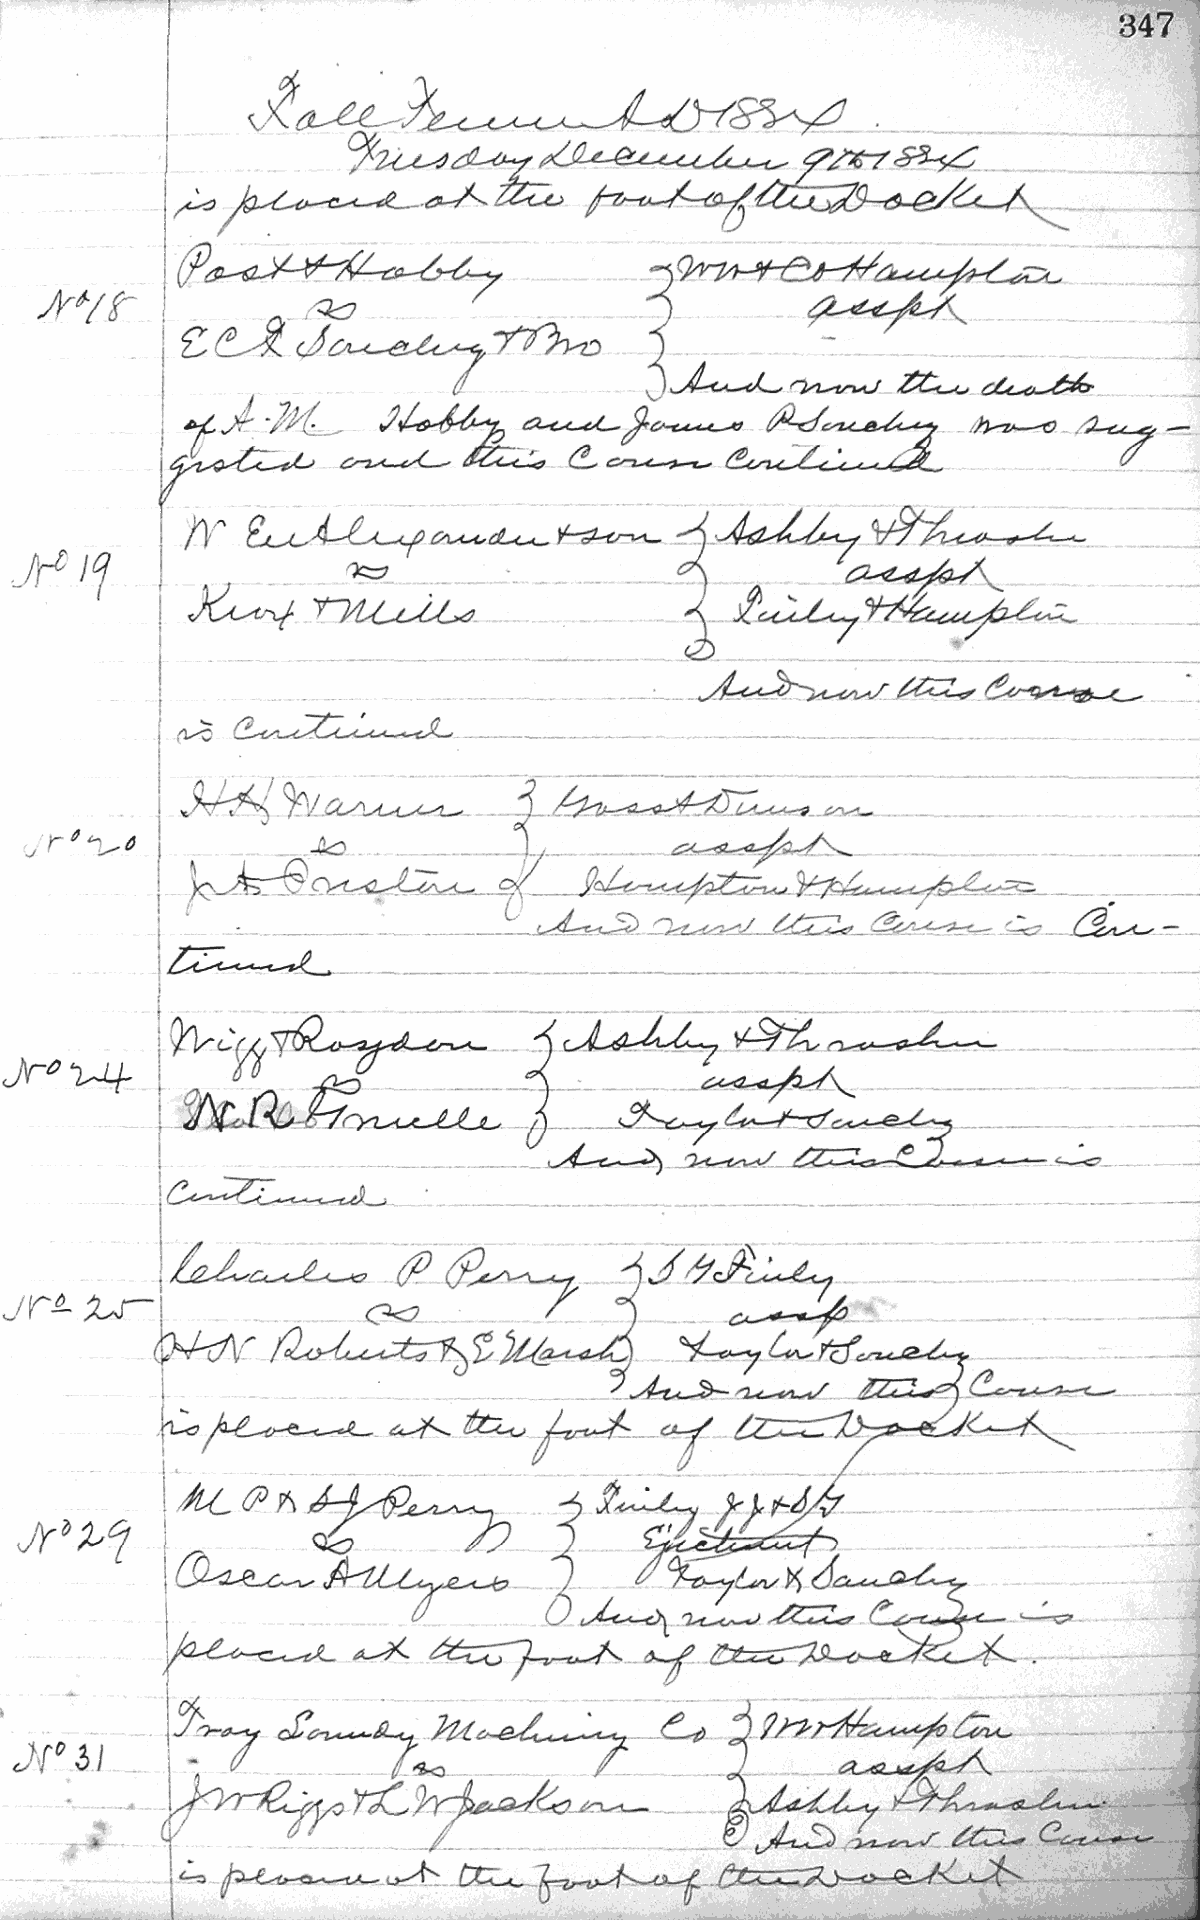 347
Fall Term A D 1884
Tuesday December 9th 1884
is placed at the foot of the Docket
Post & Hobby } W W & C O Hampton
No 18 vs asspt
E C F Sanchez & Bro
And now the death
of A. M. Hobby and James P Sanchez was sug-
gested and this Cause Continued
W Alexander & son } Ashby & Thrasher
No 19 vs asspt
Knox & Mills Finley & Hampton
And now this Cause
is Continued
H H Warner }
No 20 vs asspt
Hampton & Hampton
And now this Cause is Con-
tinued
Wigg & Roysdon } Ashby & Thrasher
No 24 vs asspt
Taylor & Sanchez
And now this Cause is
Continued
Charles P Perry } S Y Finley
No 25 vs assp
H N Roberts & E Marsh Taylor & Sanchez
And now this Cause
is placed at the foot of the Docket
M P & S J Perry } Finley J J & S Y
No 29 vs Ejectment
Oscar A Myers Taylor & Sanchez
And now this Cause is
placed at the foot of the Docket.
Troy Laundy Machinery Co } W W Hampton
No 31 vs asspt
J W Riggs & L W Jackson Ashby & Thrasher
And now this Cause
is placed at the foot of the Docket